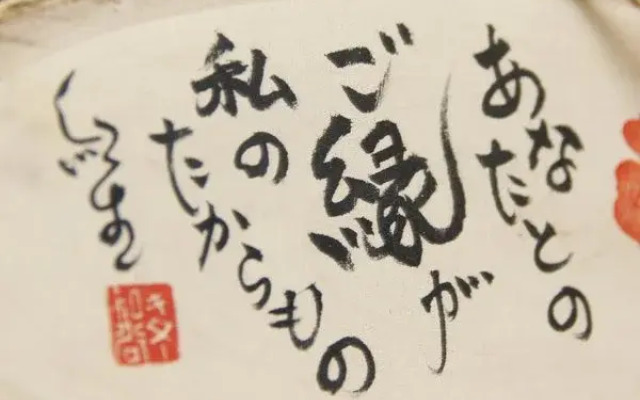 あなたとの
ご縁が
私の
たからもの